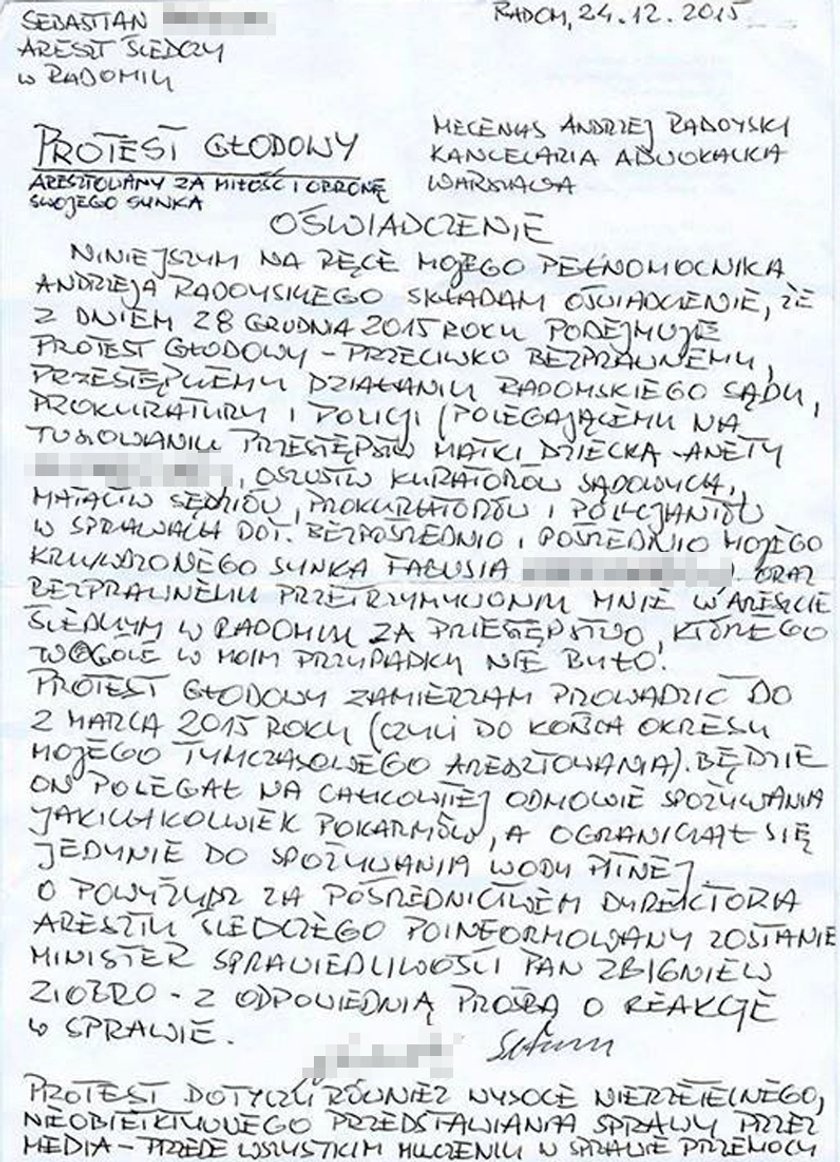 SEBASTIAN
ARESZT ŚLEDCZY
W RADOMIU
RADOM, 24.12.2015
PROTEST GŁODOWY
ARESZTOWANY ZA MIŁOŚĆ I OBRONĘ
SWOJEGO SYNKA
MECENAS ANDRZEJ RADOYSKI
KANCELARIA ADWOKACKA
WARSZAWA
OŚWIADCZENIE
NINIEJSZYM NA RĘCE MOJEGO PEŁNOMOCNIKA
ANDRZEJA RADOYSKIEGO SKŁADAM OŚWIADCZENIE, ŻE
Z DNIEM 28 GRUDNIA 2015 ROKU PODEJMUJĘ
PROTEST GŁODOWY - PRZECIWKO BEZPRAWNEMU,
PRZESTĘPCZEMU DZIAŁANIU RADOMSKIEGO SĄDU,
PROKURATURY I POLICJI (POLEGAJĄCEMU NA
TUSZOWANIU PRZESTĘPSTW MATKI DZIECKA - ANETY
, OSZUSTW KURATORÓW SĄDOWYCH,
MATACTW SĘDZIÓW, PROKURATORÓW I POLICJANTÓW
W SPRAWACH DOT. BEZPOŚREDNIO I POŚREDNIO MOJEGO
KRZYWDZONEGO SYNKA FABUSIA ) ORAZ
BEZPRAWNEMU PRZETRZYMYWANIU MNIE W ARESZCIE
ŚLEDCZYM W RADOMIU ZA PRZESTĘPSTWO, KTÓREGO
W OGÓLE W MOIM PRZYPADKU NIE BYŁO.
PROTEST GŁODOWY ZAMIERZAM PROWADZIĆ DO
2 MARCA 2015 ROKU (CZYLI DO KOŃCA OKRESU
MOJEGO TYMCZASOWEGO ARESZTOWANIA). BĘDZIE
ON POLEGAŁ NA CAŁKOWITEJ ODMOWIE SPOŻYWANIA
JAKICHKOLWIEK POKARMÓW, A OGRANICZAŁ SIĘ
JEDYNIE DO SPOŻYWANIA WODY PITNEJ
O POWYŻSZYM ZA POŚREDNICTWEM DYREKTORA
ARESZTU ŚLEDCZEGO POINFORMOWANY ZOSTANIE
MINISTER SPRAWIEDLIWOŚCI PAN ZBIGNIEW
ZIOBRO - Z ODPOWIEDNIĄ PROŚBĄ O REAKCJĘ
W SPRAWIE.
PROTEST DOTYCZY RÓWNIEŻ WYSOCE NIERZETELNEGO,
NIEOBIEKTYWNEGO PRZEDSTAWIANIA SPRAWY PRZEZ
MEDIA - PRZEDE WSZYSTKIM MILCZENIU W SPRAWIE PRZEMOCY